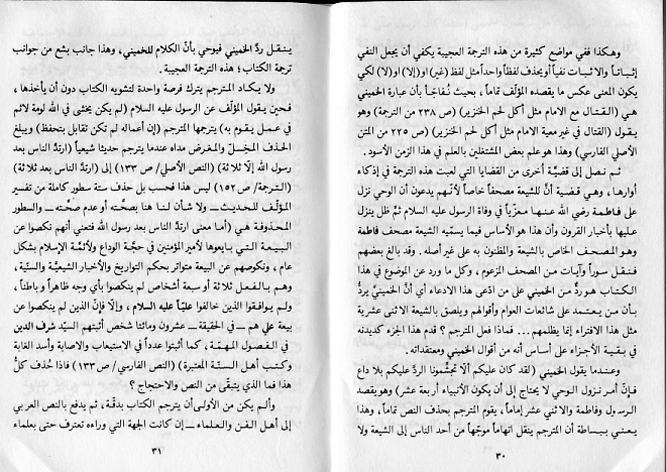 وهكذا ففي مواضع كثيرة من هذه الترجمة العجيبة يكفي أن يجعل النفي
إثباتاً والاثبات نفياً أو يحذف لفظاً واحداً مثل لفظ (غير) او (إلا) او (لا) لكي
يكون المعنى عكس ما يقصده المؤلف تماماً، بحيث نُفاجَأ بأن عبارة الخميني
هي (القتال مع الامام مثل أكل لحم الخنزير) (ص ٢٣٨ من الترجمة) وهو
يقول (القتال في غير معية الامام مثل أكل لحم الخنزير) (ص ٢٢٥ من المتن
الأصلي الفارسي) وهذا هو علم بعض المشتغلين بالعلم في هذا الزمن الأسود.
ثم نصل إلى قضيَّة أخرى من القضايا التي لعبت هذه الترجمة في إذكاء
أوارها، وهي قضية أنّ للشيعة مصحفاً خاصاً لأنّهم يدعون أن الوحي نزل
على فاطمة رضي الله عنها معزّياً في وفاة الرسول عليه السلام ثمّ ظل ينزل
عليها بأخبار القرون وأن هذا هو الأساس فيما يسميه الشيعة مصحف فاطمة
وهو المصحف الخاص بالشيعة والمظنون به على غير أصله. وقد بالغ بعضهم
فنقل سوراً وآيات من المصحف المزعوم، وكل ما ورد عن الوضوع في هذا
الكتاب هو ردٌّ من الخميني على من ادّعى هذا الادعاء أي أنّ الخمينيَّ يردُّ
بأن من يعتمد على شائعات العوام وأقوالهم ويلصق بالشيعة الاثنى عشرية
مثل هذا الافتراء إنما يظلمهم... فماذا فعل المترجم؟ قدم هذا الجزء كديدنه
في بقية الأجزاء على أساس أنه من أقوال الخميني ومعتقداته.
وعندما يقول الخميني (لقد كان عليكم ألا تجشَّمونا الردّ عليكم بلا داع
فإنّ أمر نزول الوحي لا يحتاج إلى أن يكون الأنبياء أربعة عشر) وهو يقصد
الرسول وفاطمة والاثنى عشر إماماً، يقوم المترجم بحذف النص تماماً، وهذا
يعني ببساطة أن المترجم ينقل اتهاماً موجّهاً من أحد الناس إلى الشيعة ولا
٣٠
ينقل ردَّ الخميني فيوحي بأنّ الكلام للخميني، وهذا جانب بشع من جوانب
ترجمة الكتاب؛ هذه الترجمة العجيبة.
ولا يكاد المترجم يترك فرصة واحدة لتشويه الكتاب دون أن يأخذها،
فحين يقول المؤلّف عن الرسول عليه السلام (لم يكن يخشى في الله لومة لائم
في عمل يقوم به) يترجمها المترجم (إن أعماله لم تكن تقابل بتحفظ) ويبلغ
الحذف المخِلّ والمغرض مداه عندما يترجم حديثاً شيعياً (ارتدَّ الناس بعد
رسول الله إلّا ثلاثة) (النص الأصلي/ ص ١٣٣) إلى (ارتدّ الناس بعد ثلاثة)
(الترجمة/ ص ١٥٢) ليس هذا فحسب بل حذف ستة سطور كاملة من تفسير
المؤلف للحديث ـ ولا شأن لنا هنا بصحّته أو عدم صحَّته ـ والسطور
المحذوفة هي (أما معنى ارتد الناس بعد رسول الله فتعني أنهم نكصوا عن
البيعة التي بايعوها لأمير المؤمنين في حجّة الوداع ولأئمّة الإسلام بشكل
عام، ونكوصهم عن البيعة متواتر بحكم التواريخ والأخبار الشيعيَّة والسنّية،
وهم بالفعل ثلاثة أو سبعة أشخاص لم ينكصوا بأي وجه ظاهراً وباطناً،
ولم يوافقوا الذين خالفوا علياً عليه السلام، وإلّا فإنّ الذين لم ينكصوا عن
بيعة علي هم ـ في الحقيقة ـ عشرون ومائتا شخص أثبتهم السيّد شرف الدين
في الفصول المهمّة، كما أثبتوا عدداً في الاستيعاب والاصابة وأسد الغابة
وكتب أهل السنّة المعتبرة) (النص الفارسي/ ص ١٣٣) فإذا حُذف كلُّ
هذا فما الذي يتبقّى من النص والاحتجاج؟
وألم يكن من الأولى أن يترجم الكتاب بدقّة، ثم يدفع بالنص العربي
إلى أهل الفن والعلماء ـ إن كانت الجهة التي وراءه تعترف حتى بعلماء
٣١